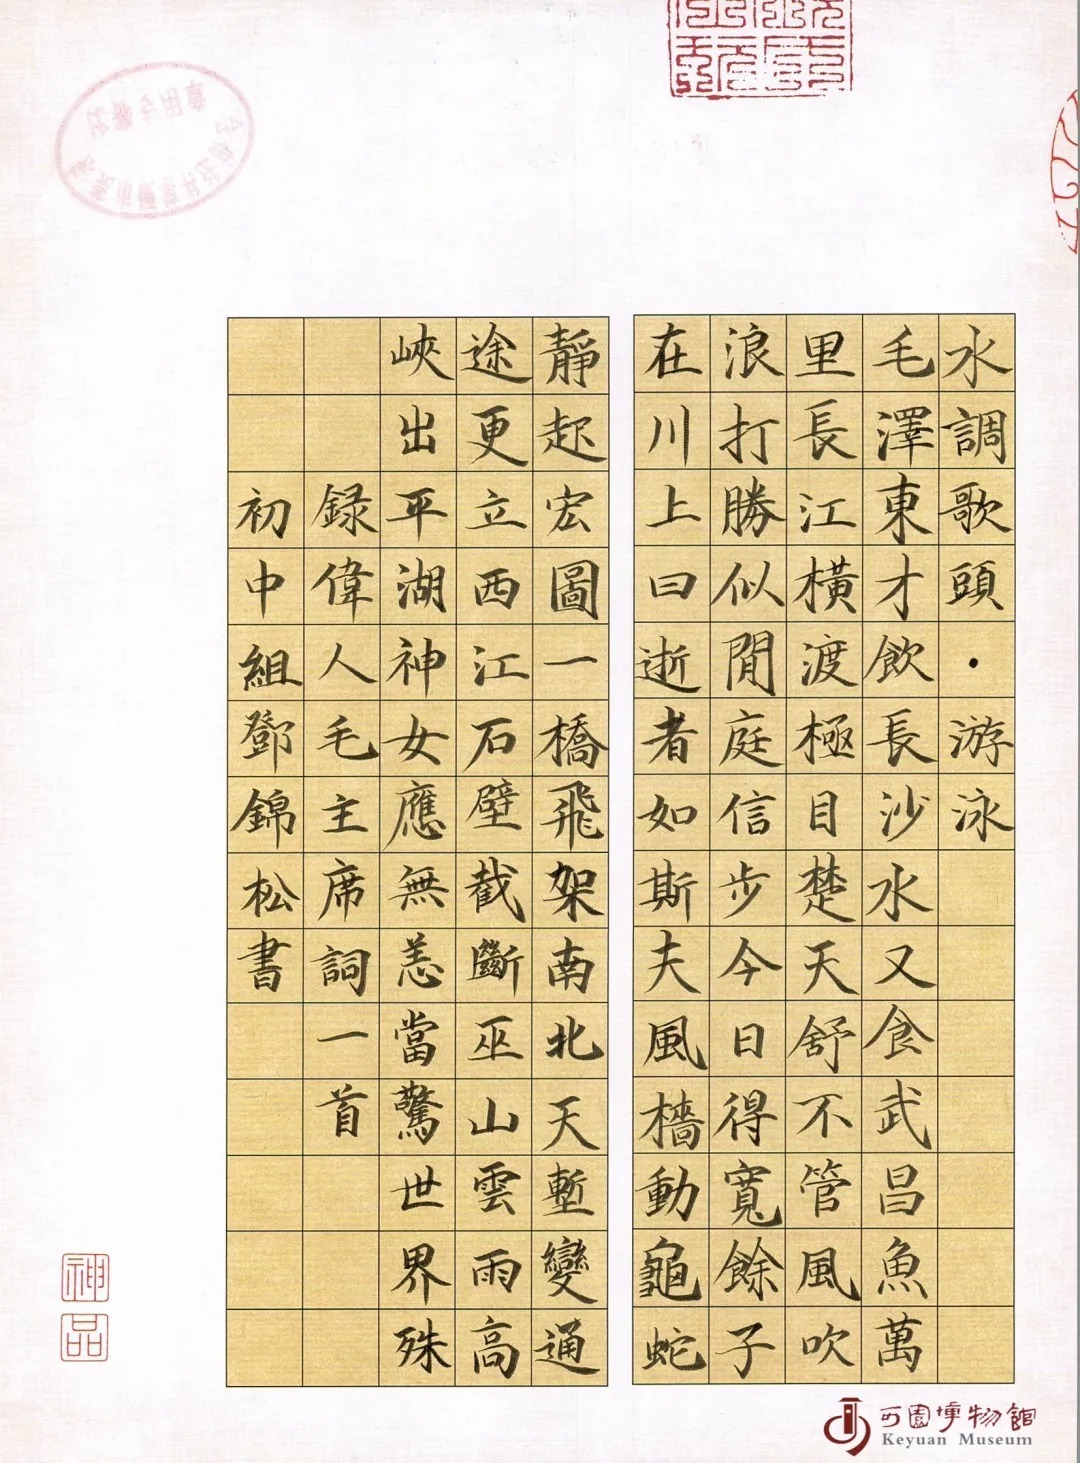 水調歌頭·游泳
毛澤東才飲長沙水又食武昌魚萬
里長江横渡極目楚天舒不管風吹
浪打勝似閒庭信步今日得寬餘子
在川上曰逝者如斯夫風檣動龜蛇
靜起宏圖一橋飛架南北天塹變通
途更立西江石壁截斷巫山雲雨高
峽出平湖神女應無恙當驚世界殊
録偉人毛主席詞一首
初中組鄧錦松書
神品
可園博物館
Keyuan Museum